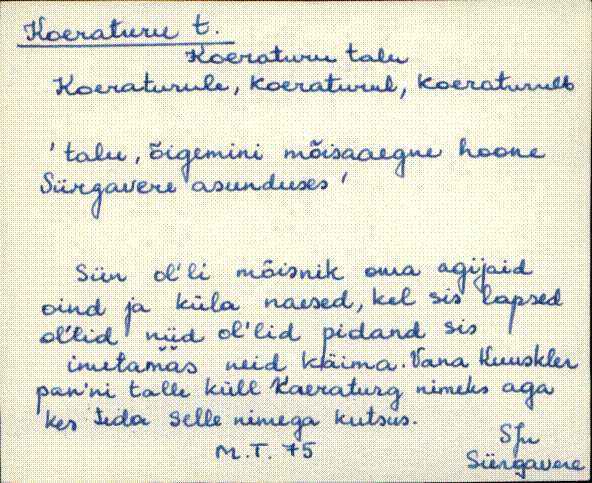 Koeraturu t.
Koeraturu talu
Koeraturule, koeraturul, koeraturult
'talu, õigemini mõisaaegne hoone
Sürgavere asunduses'
Siin ol'li mõisnik oma agijaid
oind ja küla naesed, kel sis lapsed
ol'lid nüid ol'lid pidand sis
imetamäs neid käima. Vana Kuuskler
pan'ni talle küll Kaeraturg nimeks aga
kes teda selle nimega kutsus.
M.T. 75
SJn
Sürgavere